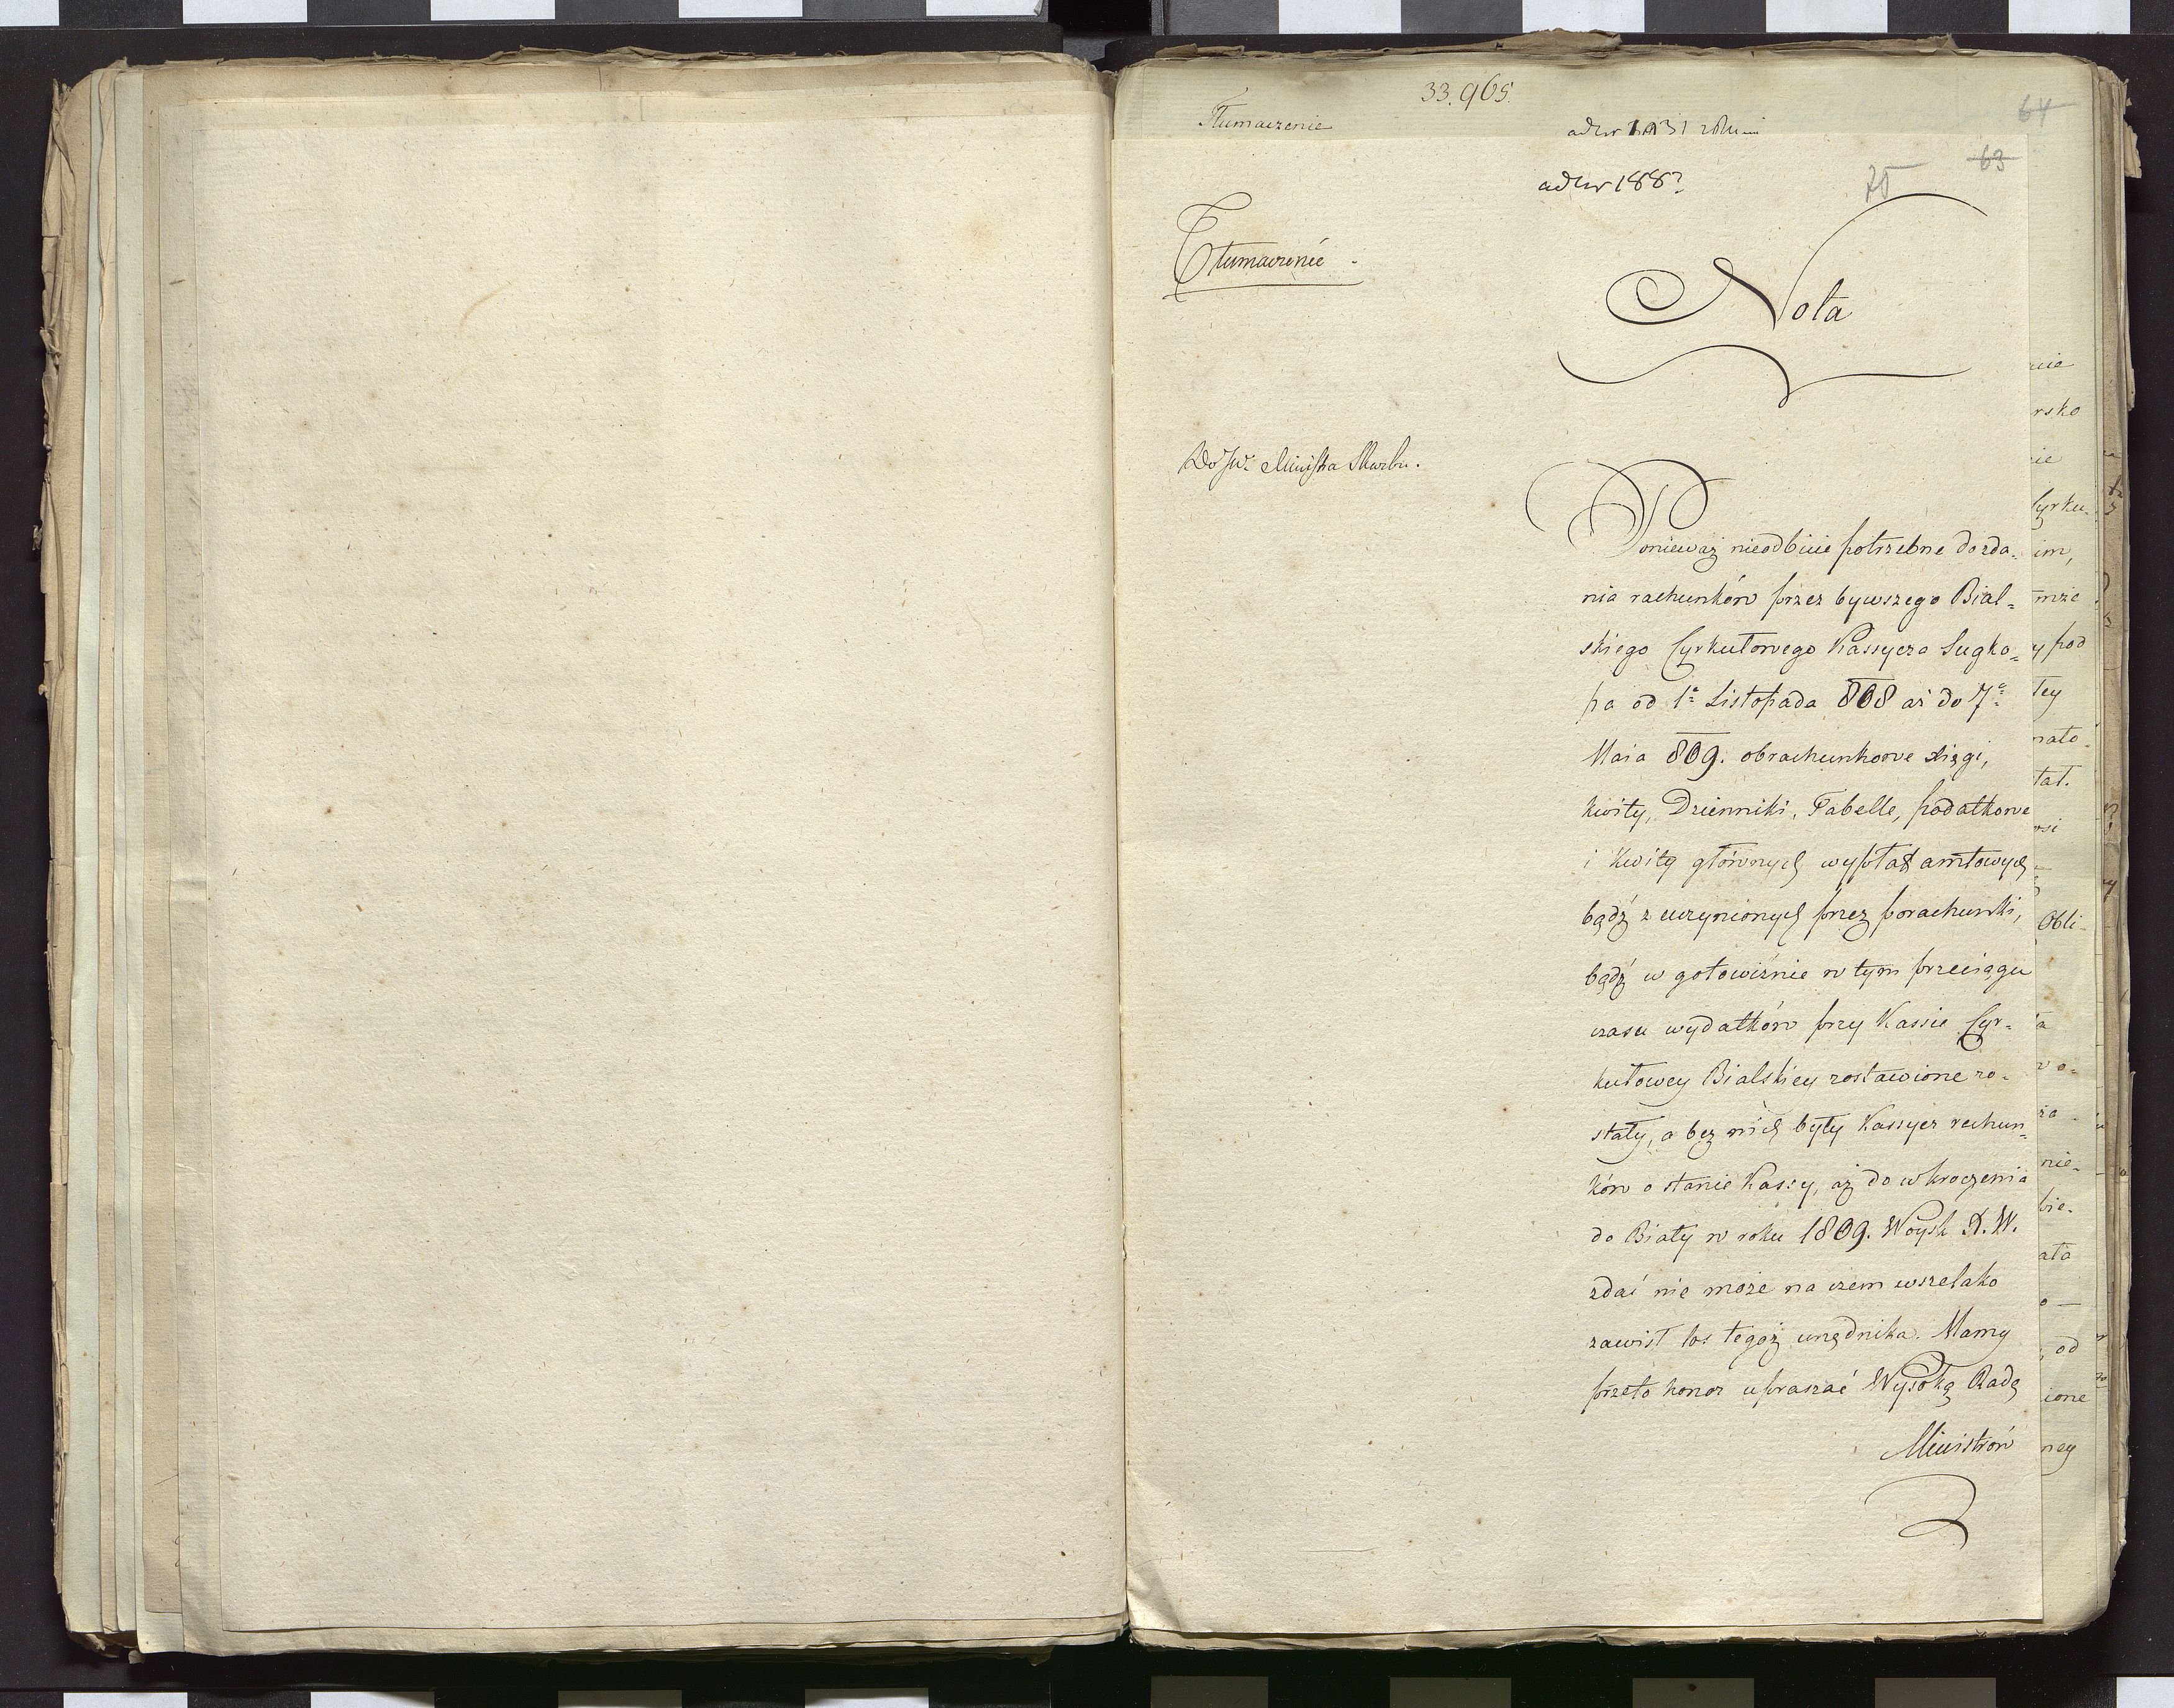 33.965.
Tłumaczenie
64
63
75
Tłumaczenie.
Nota
Do JW. Ministra Skarbu.
Ponieważ nieodbicie potrzebne do zda-
nia rachunków przez bywszego Bial-
skiego Cyrkułowego Kassyera Lugho-
pa od 1a Listopada 808 aż do 7a
Maia 809. obrachunkowe xięgi,
kwity, Dzienniki, Tabelle, podatkowe
i kwity głównych wypłat amtowych
bądź z uczynionych przez porachunki,
bądź w gotowiźnie w tym przeciągu
czasu wydatków przy Kassie Cyr-
kułowey Bialskiey zostawione zo-
stały, a bez nich były Kassyer rachun-
ków o stanie Kassy, aż do wkroczenia
do Biały w roku 1809. Woysk X. W.
zdać nie może na czem wszelako
zawisł los tegoż urzędnika. Mamy
przeto honor upraszać Wysoką Radę
Ministrów